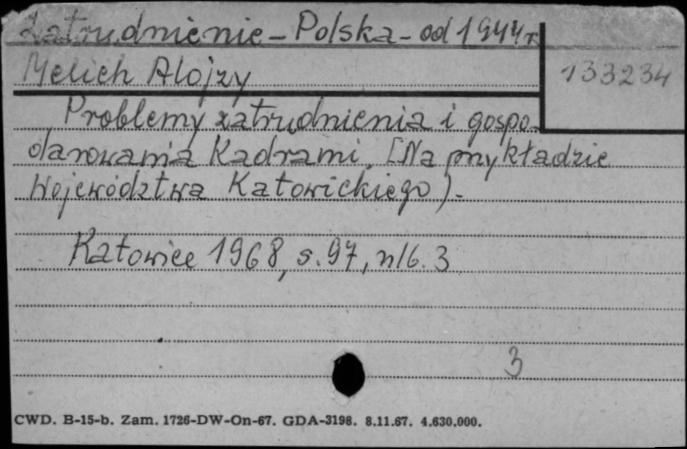 Zatrudnienie - Polska - od 1944 r.
133234
Melich Alojzy
Problemy zatrudnienia i gospo-
darowania Kadrami. [Na przykładzie
Województwa Katowickiego).
Katowice 1968, s. 97, nlb. 3
3
CWD. B-15-b. Zam. 1726-DW-On-67. GDA-3198. 8.11.67. 4.630.000.